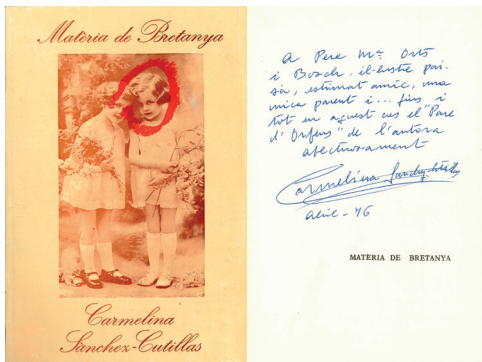 Matèria de Bretanya
Carmelina
Sanchez-Cutillas
A Pere Mª Orts
i Bosch, il·lustre pai-
sà, estimat amic, una
mica parent i... fins i
tot en aquest cas el "Pare
d'Orfens" de l'autora
afectuosament
Carmelina Sanchez-Cutillas
Abril - 76
MATERIA DE BRETANYA